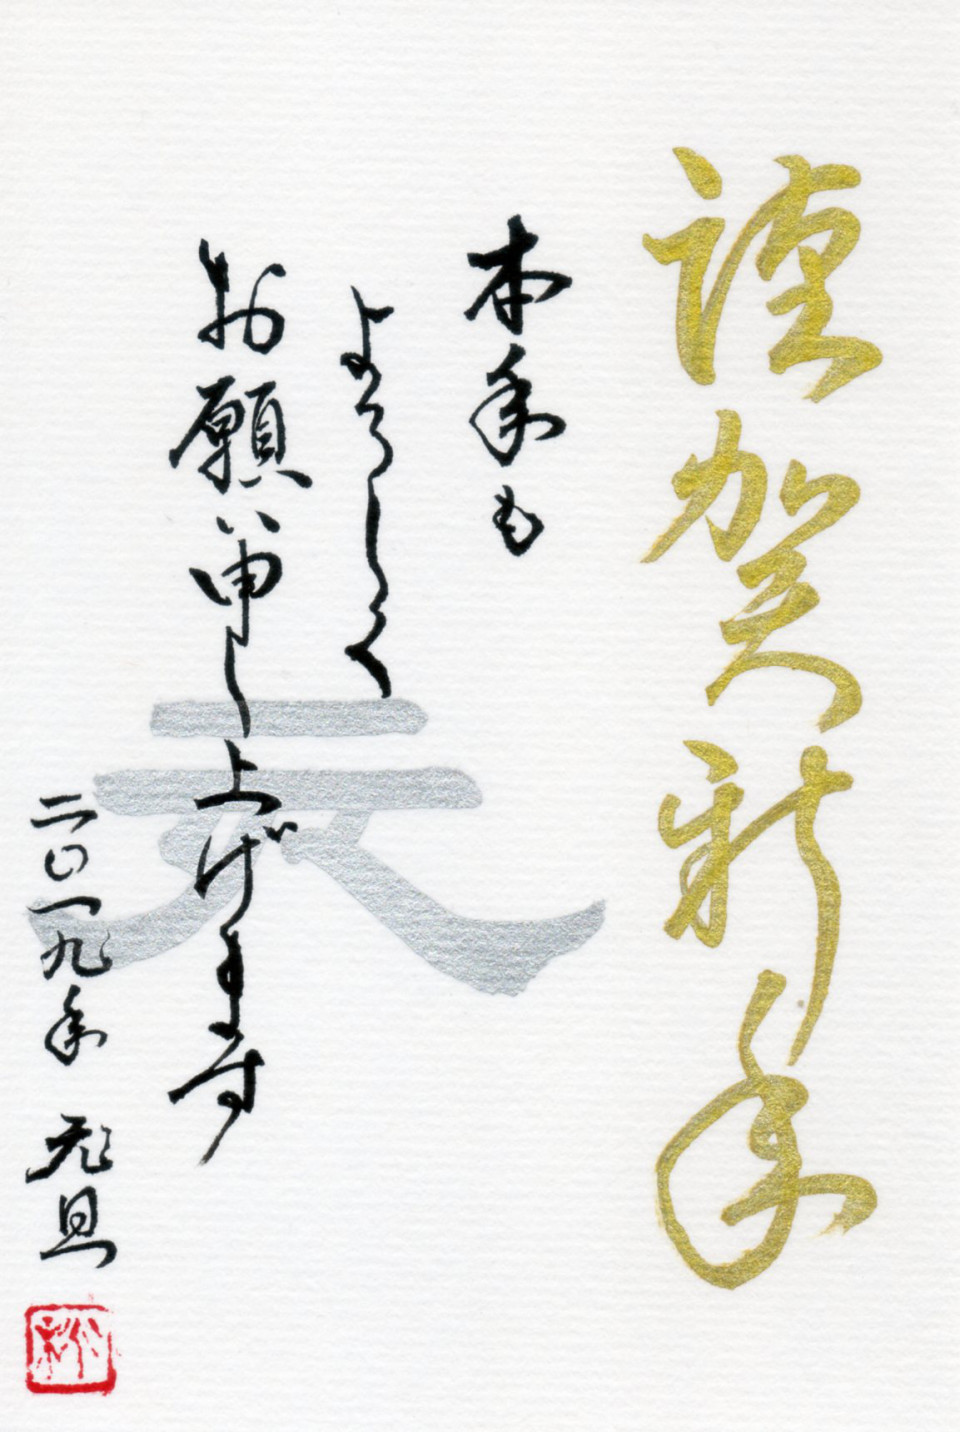 謹賀新年
本年も
よろしく
お願い申し上げます
二〇一九年 元旦